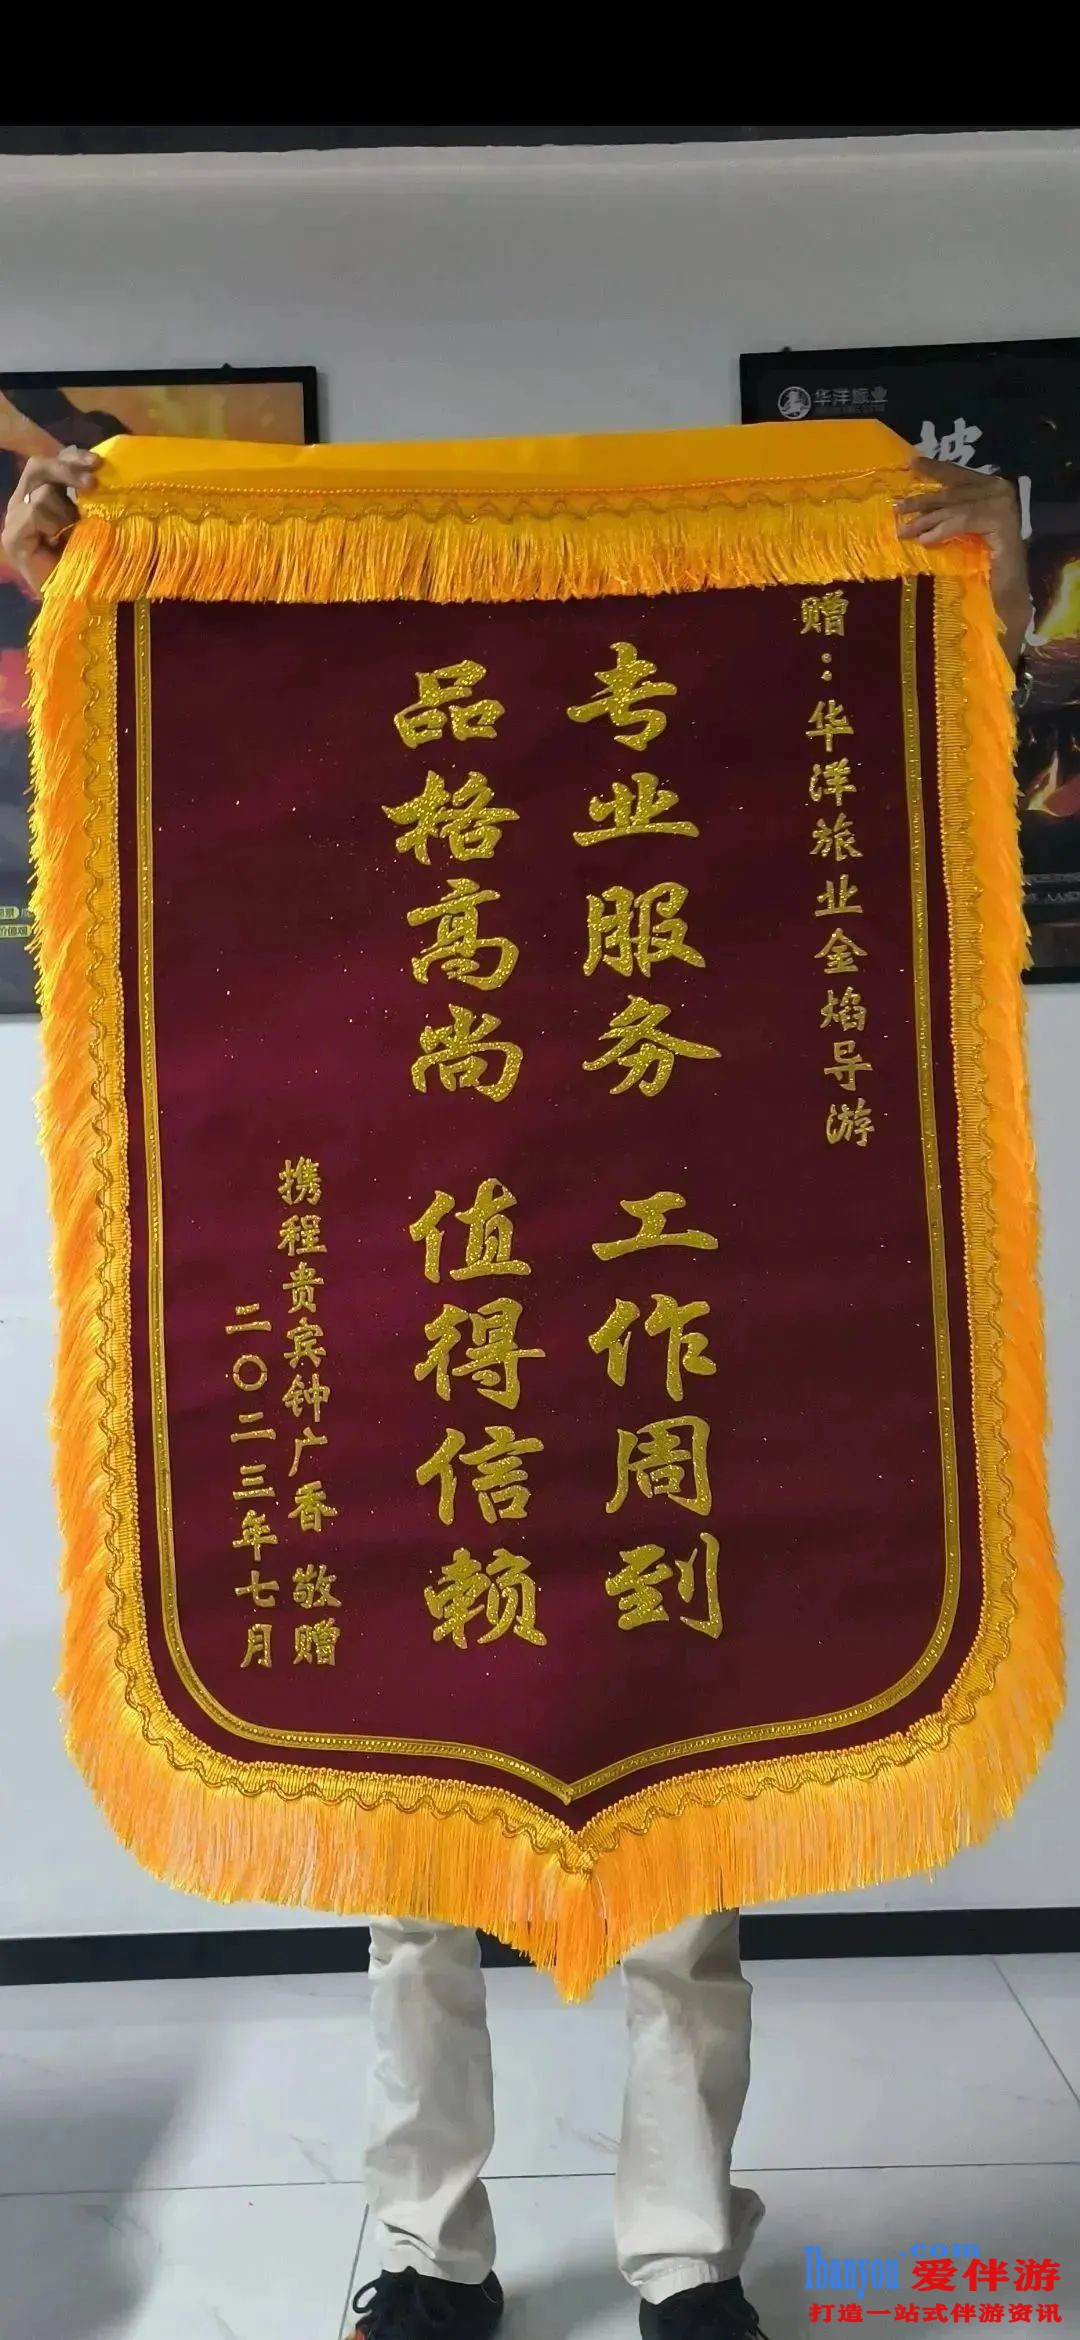 华洋旅业
赠：华洋旅业金焰导游
专业服务 工作周到
品格高尚 值得信赖
携程贵宾钟广香 敬赠
二〇二三年七月
Ibanyou.com
爱伴游
打造一站式伴游资讯